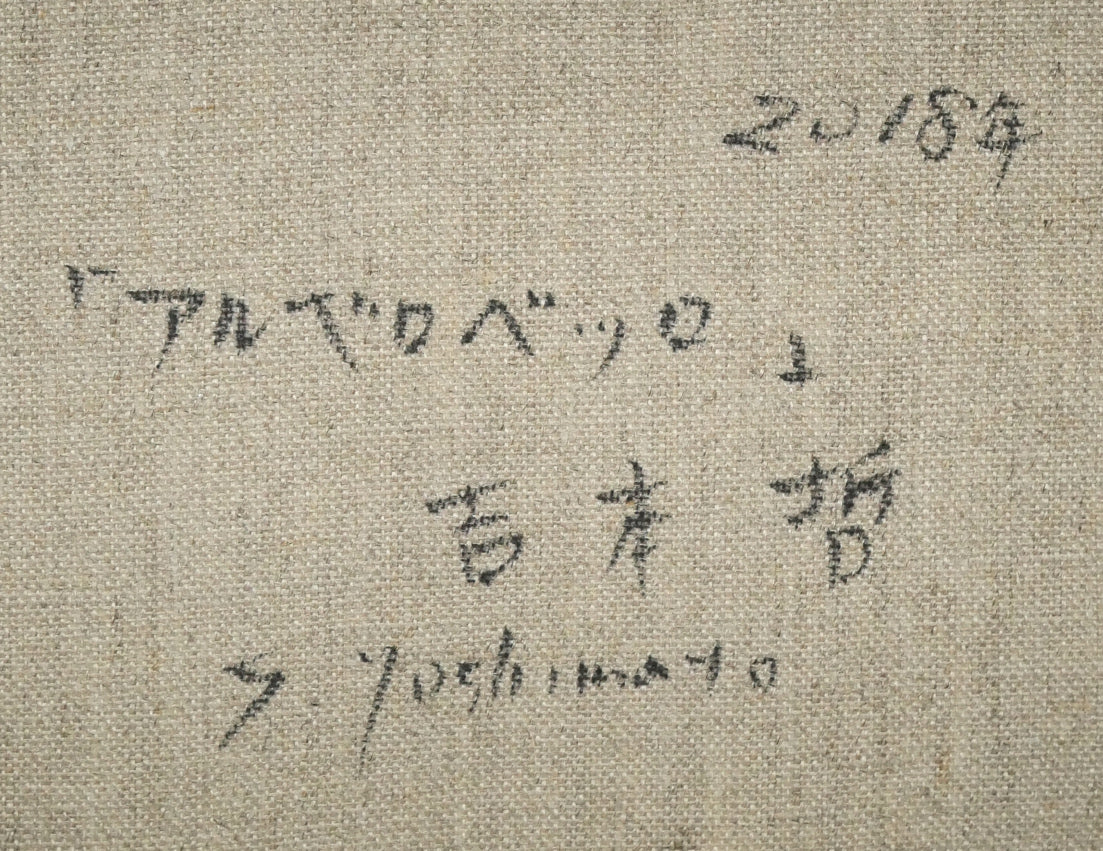 2018年
「アルベロベッロ」
吉本 哲
S. Yoshimoto